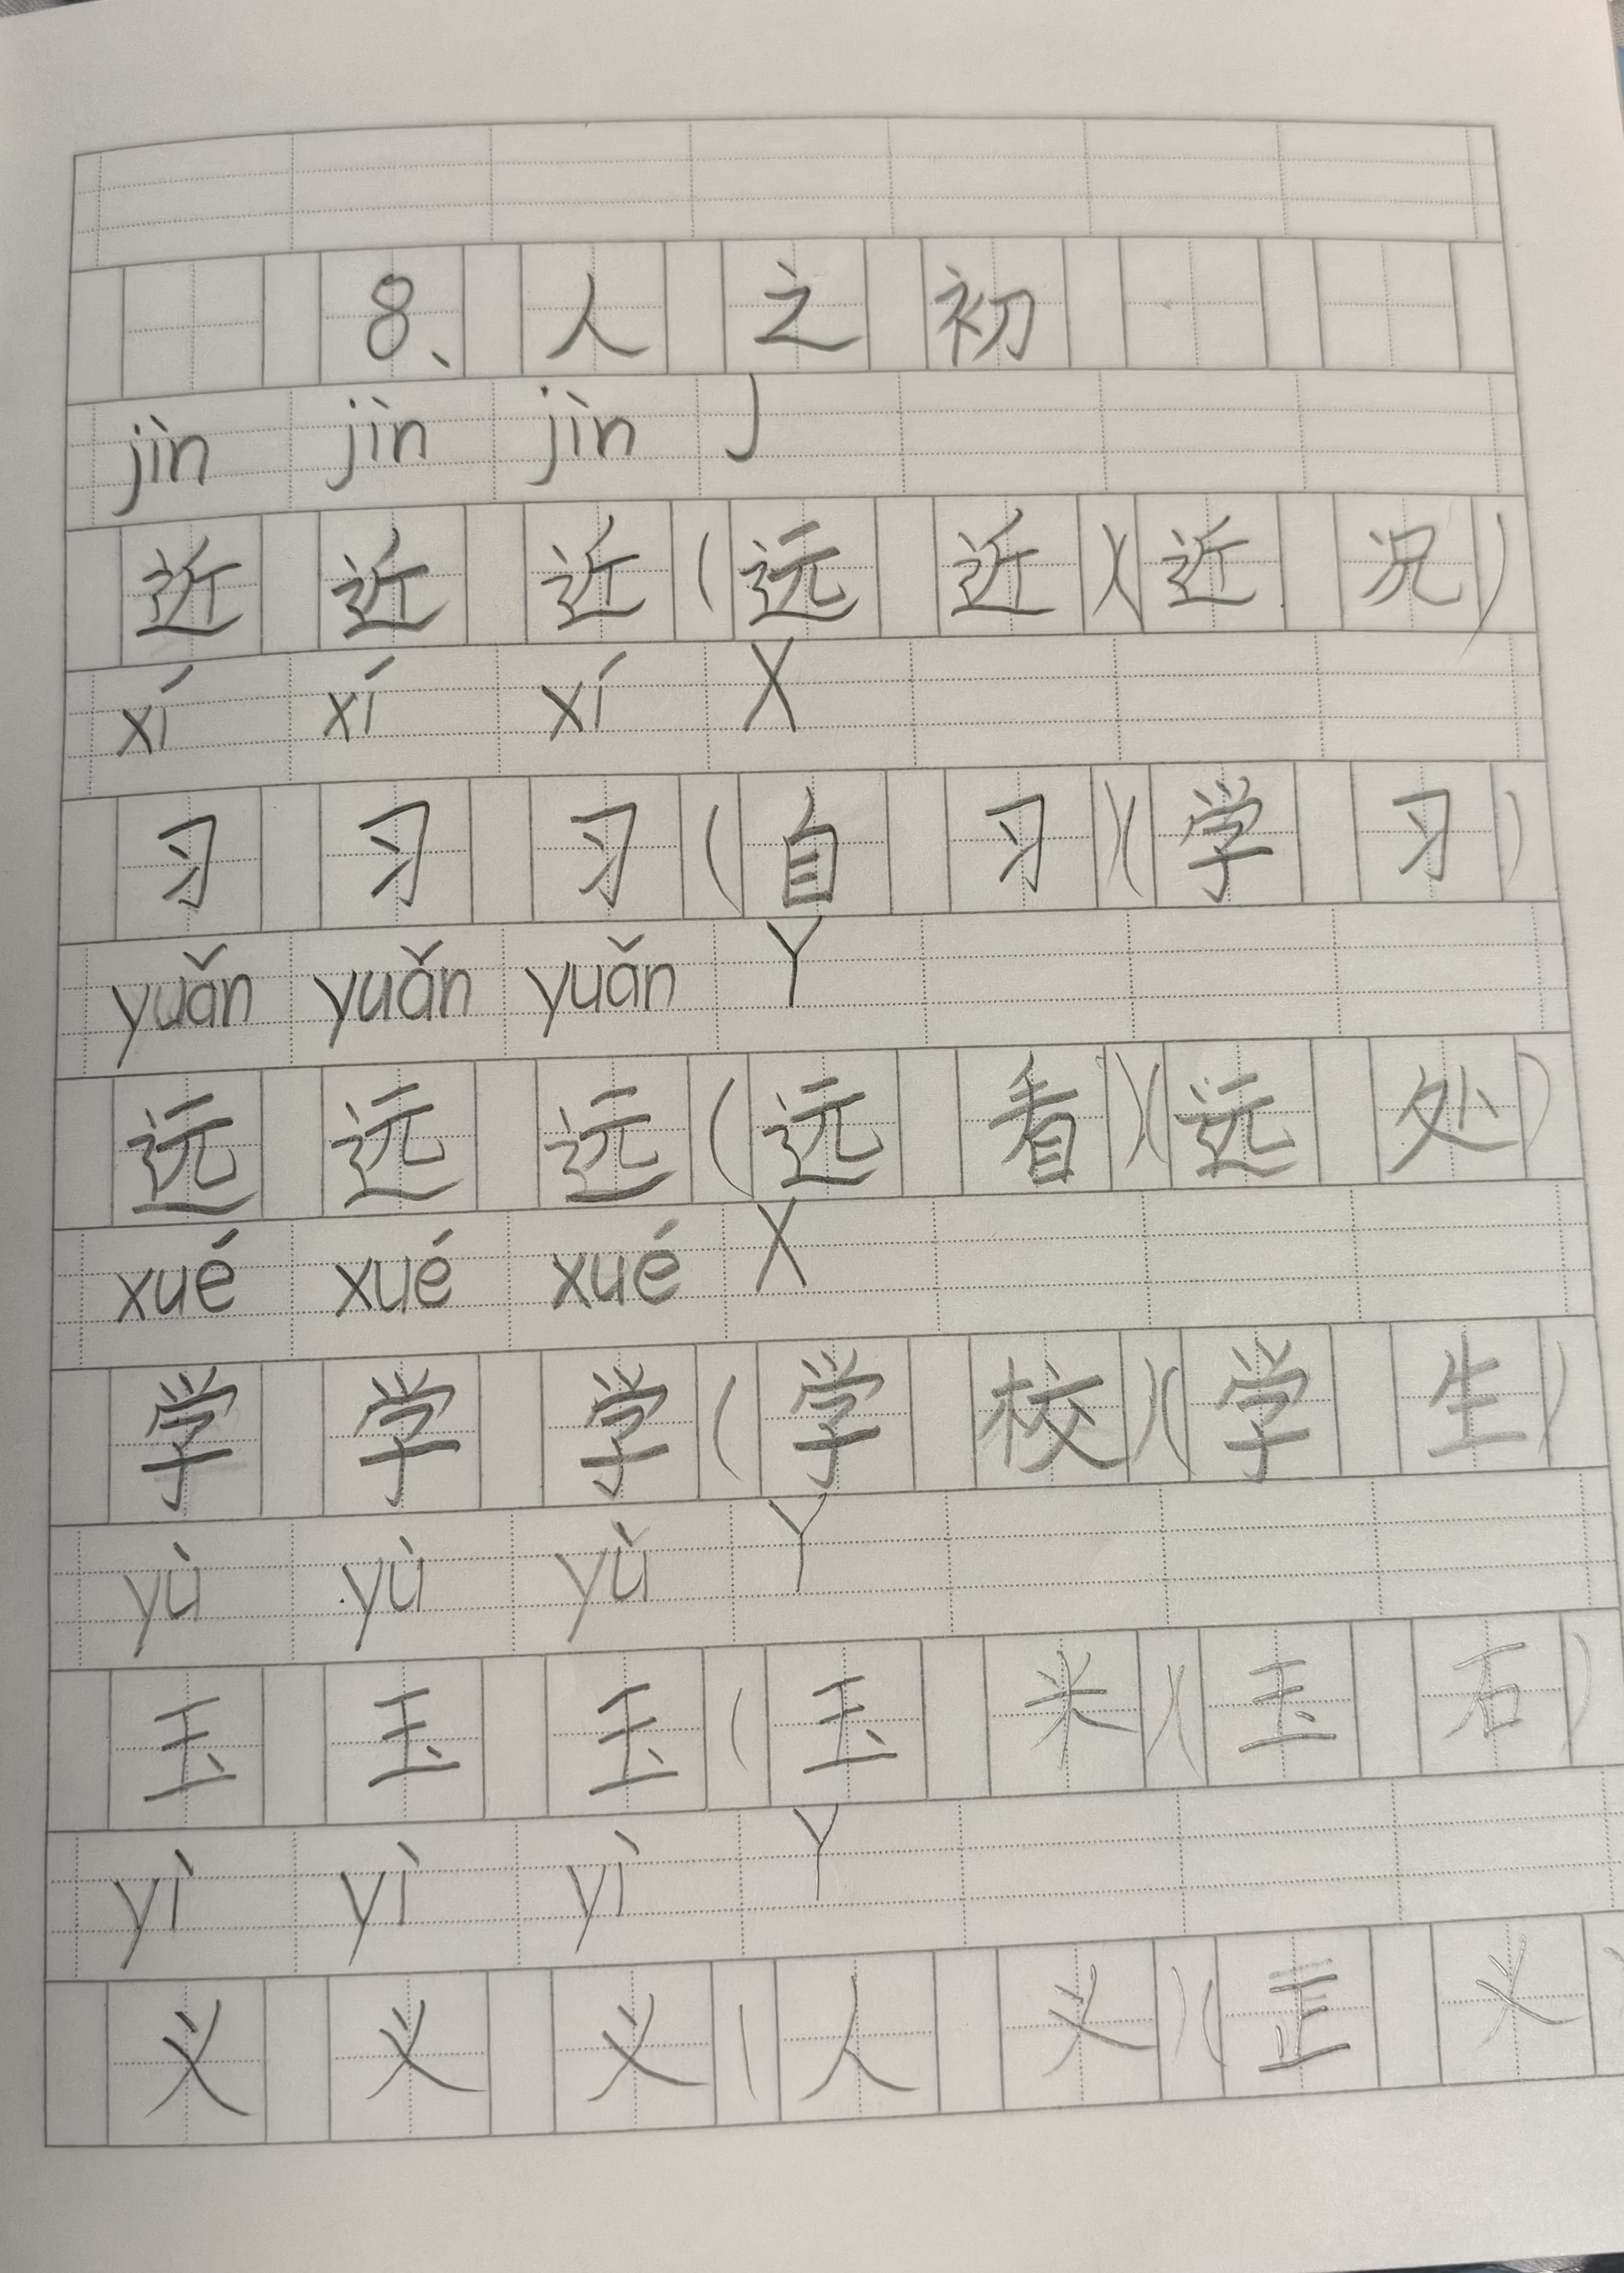 8、人之初
jìn jìn jìn J
近近近(远近)(近况)
xí xí xí X
习习习(自习)(学习)
yuǎn yuǎn yuǎn Y
远远远(远看)(远处)
xué xué xué X
学学学(学校)(学生)
yù yù yù Y
玉玉玉(玉米)(玉石)
yì yì yì Y
义义义(人义)(正义)